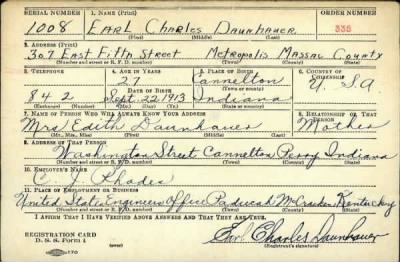 SERIAL NUMBER 1. NAME (Print) ORDER NUMBER
1008 EARL CHARLES DAUNHAUER 336
(First) (Middle) (Last)
2. ADDRESS (Print)
307 East Fifth Street Metropolis Massac County
(Number and street or R. F. D. number) (Town) (County) (State)
3. TELEPHONE 4. AGE IN YEARS 5. PLACE OF BIRTH 6. COUNTRY OF CITIZENSHIP
27 Cannelton
DATE OF BIRTH (Town or county)
842 Sept. 22 1913 Indiana U.S.A
(Mo.) (Day) (Yr.) (State or country)
7. NAME OF PERSON WHO WILL ALWAYS KNOW YOUR ADDRESS 8. RELATIONSHIP OF THAT PERSON
Mrs. Edith Daunhauer Mother
(Mr., Mrs., Miss) (First) (Middle) (Last)
9. ADDRESS OF THAT PERSON
Washington Street Cannelton Perry Indiana
(Number and street or R. F. D. number) (Town) (County) (State)
10. EMPLOYER'S NAME
C. J. Rhodes
11. PLACE OF EMPLOYMENT OR BUSINESS
United States Engineers Office Paducah McCracken Kentucky
(Number and street or R. F. D. number) (Town) (County) (State)
I AFFIRM THAT I HAVE VERIFIED ABOVE ANSWERS AND THAT THEY ARE TRUE.
REGISTRATION CARD
D. S. S. Form 1 Earl Charles Daunhauer
(Registrant's signature)